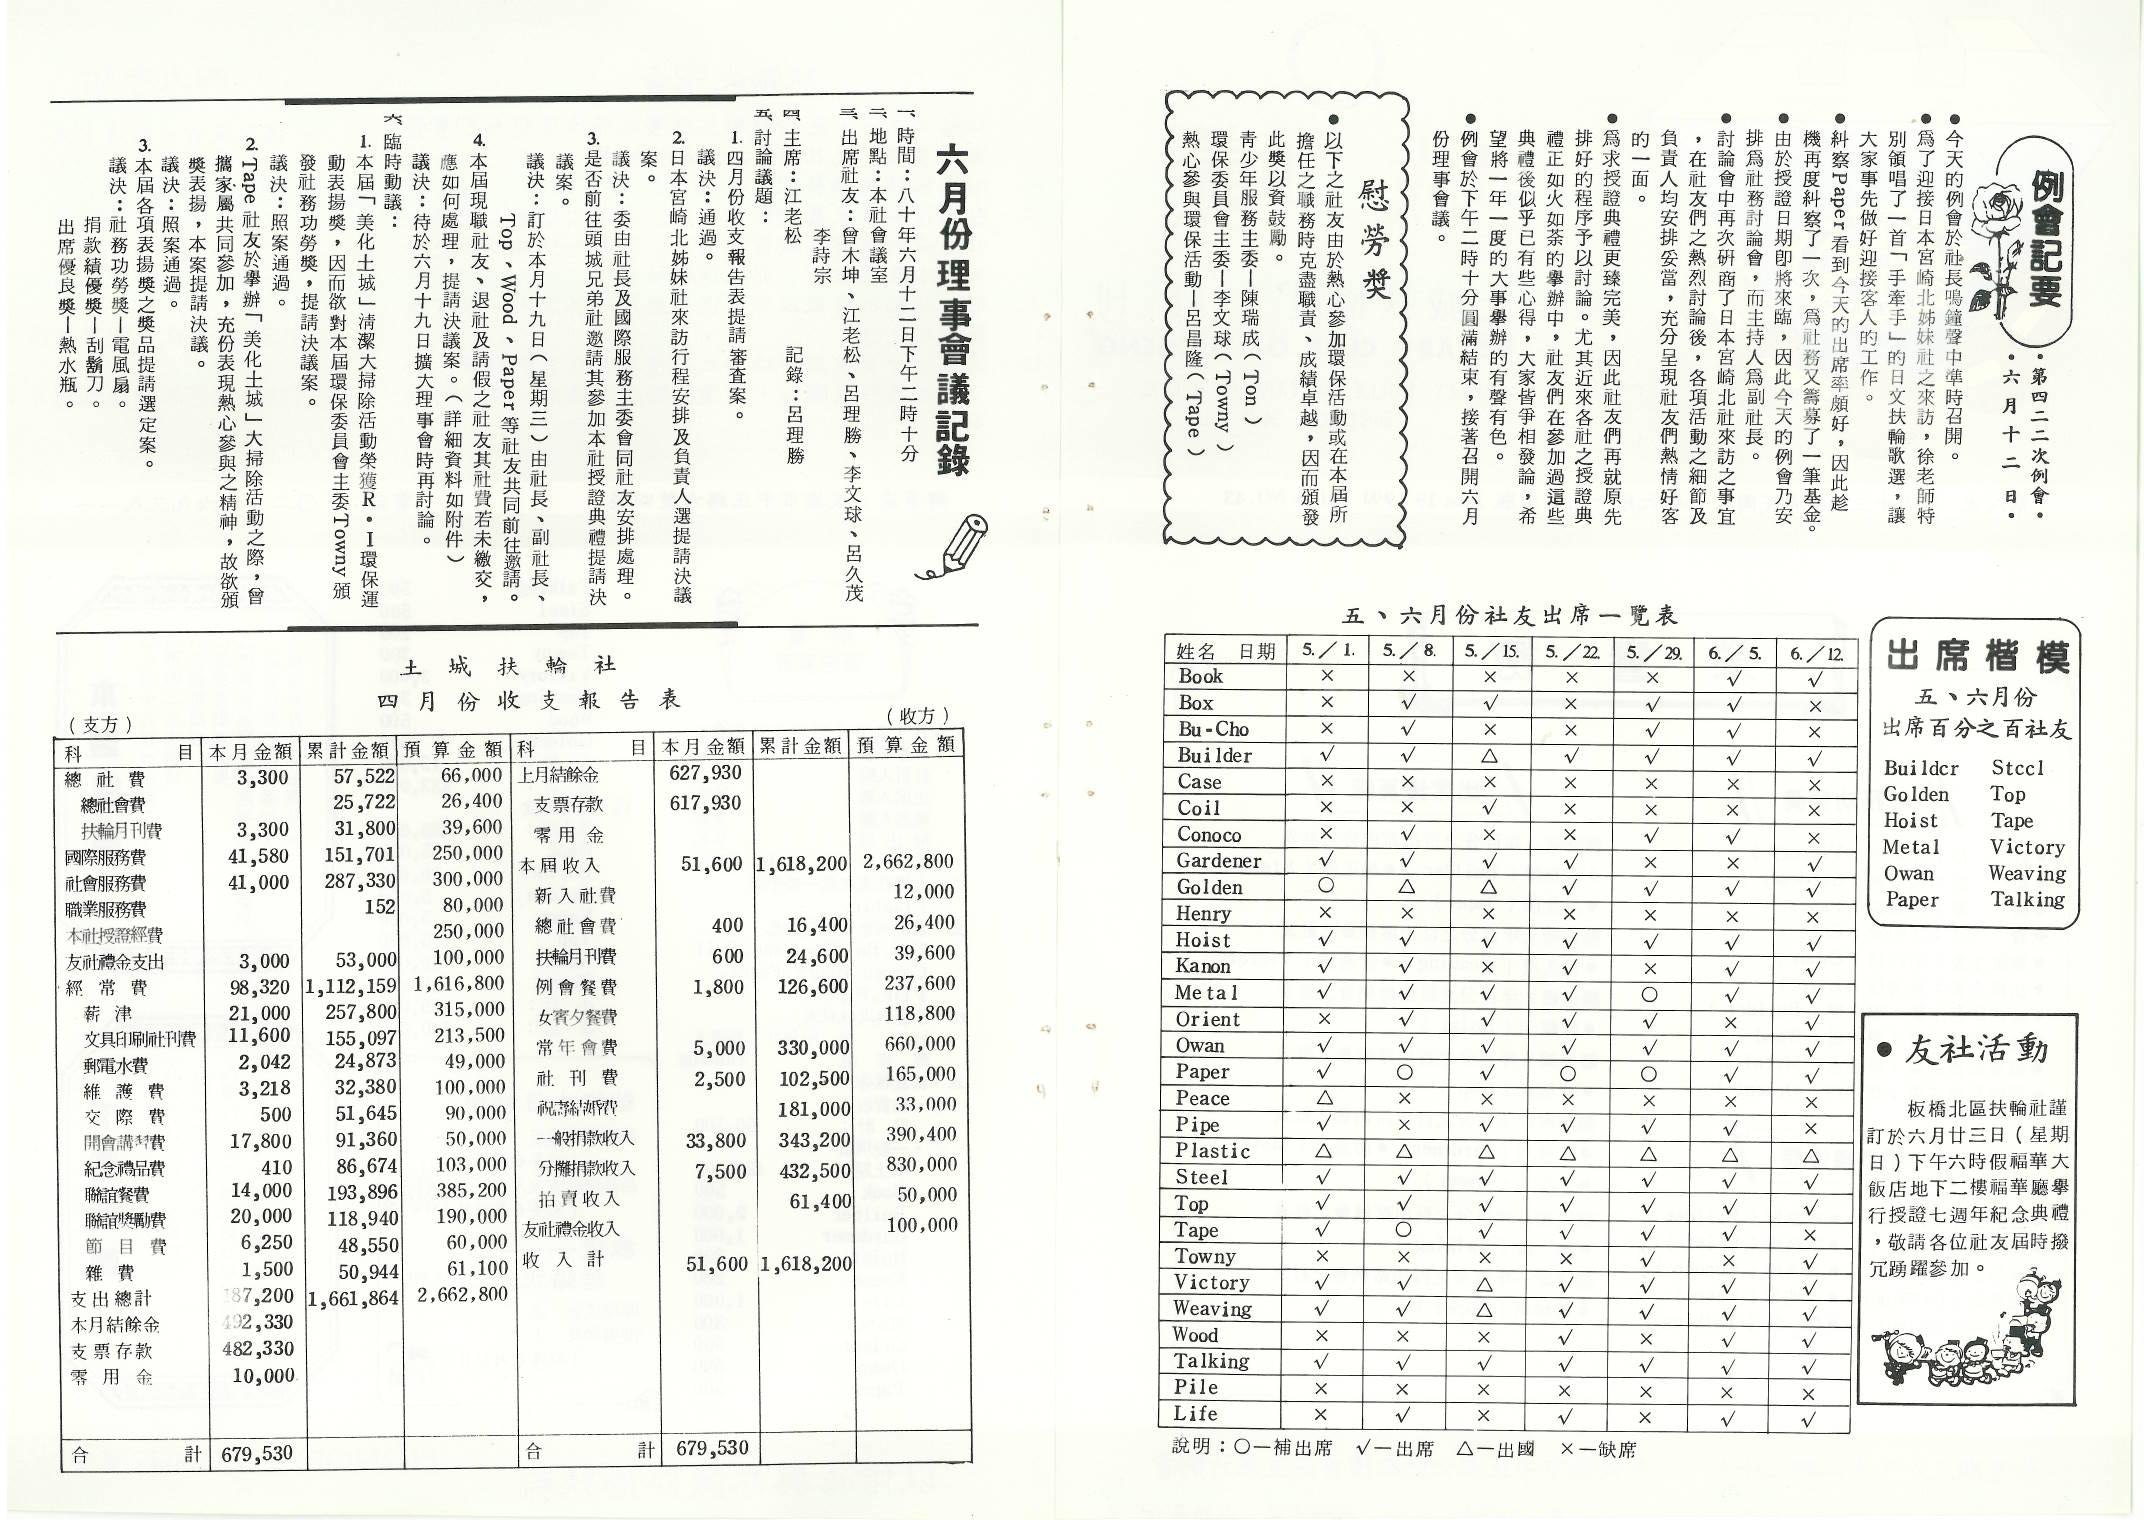 例會記要
•第四二二次例會•
•六月十二日•
●今天的例會於社長鳴鐘聲中準時召開。
●爲了迎接日本宮崎北姊妹社之來訪,徐老師特
別領唱了一首「手牽手」的日文扶輪歌選,讓
大家事先做好迎接客人的工作。
●糾察Paper看到今天的出席率頗好,因此趁
機再度糾察了一次,爲社務又籌募了一筆基金。
●由於授證日期卽將來臨,因此今天的例會乃安
排爲社務討論會,而主持人爲副社長。
●討論會中再次硏商了日本宮崎北社來訪之事宜
,在社友們之熱烈討論後,各項活動之細節及
負責人均安排妥當,充分呈現社友們熱情好客
的一面。
●爲求授證典禮更臻完美,因此社友們再就原先
排好的程序予以討論。尤其近來各社之授證典
禮正如火如荼的擧辦中,社友們在參加過這些
典禮後似乎已有些心得,大家皆爭相發論,希
望將一年一度的大事擧辦的有聲有色。
●例會於下午二時十分圓滿結束,接著召開六月
份理事會議。
慰勞獎
●以下之社友由於熱心參加環保活動或在本屆所
擔任之職務時克盡職責、成績卓越,因而頒發
此獎以資鼓勵。
靑少年服務主委—陳瑞成(Ton)
環保委員會主委—李文球(Towny)
熱心參與環保活動—呂昌隆(Tape)
五、六月份社友出席一覽表
姓名 日期 5./1. 5./8. 5./15. 5./22. 5./29. 6./5. 6./12.
Book × × × × × √ √
Box × √ √ × √ √ ×
Bu-Cho × √ × × √ √ ×
Builder √ √ △ √ √ √ √
Case × × × × × × ×
Coil × × √ × × × ×
Conoco × √ × × √ √ ×
Gardener √ √ √ √ × × √
Golden ○ △ △ √ √ √ √
Henry × × × × × × ×
Hoist √ √ √ √ √ √ √
Kanon √ √ × √ × √ √
Metal √ √ √ √ ○ √ √
Orient × √ √ √ √ × √
Owan √ √ √ √ √ √ √
Paper √ ○ √ ○ ○ √ √
Peace △ × × × × × ×
Pipe √ × √ √ √ √ ×
Plastic △ △ △ △ △ △ △
Steel √ √ √ √ √ √ √
Top √ √ √ √ √ √ √
Tape √ ○ √ √ √ √ ×
Towny × × × × √ × √
Victory √ √ △ √ √ √ √
Weaving √ √ △ √ √ √ √
Wood × × × √ × √ √
Talking √ √ √ √ √ √ √
Pile × × × × × × ×
Life × √ × √ × √ √
說明:○—補出席 √—出席 △—出國 ×—缺席
出席楷模
五、六月份
出席百分之百社友
Builder Steel
Golden Top
Hoist Tape
Metal Victory
Owan Weaving
Paper Talking
●友社活動
板橋北區扶輪社謹
訂於六月廿三日(星期
日)下午六時假福華大
飯店地下二樓福華廳擧
行授證七週年紀念典禮
,敬請各位社友屆時撥
冗踴躍參加。
六月份理事會議記錄
一、時間:八十年六月十二日下午二時十分
二、地點:本社會議室
三、出席社友:曾木坤、江老松、呂理勝、李文球、呂久茂
李詩宗
四、主席:江老松 記錄:呂理勝
五、討論議題:
1.四月份收支報告表提請審查案。
議決:通過。
2.日本宮崎北姊妹社來訪行程安排及負責人選提請決議
案。
議決:委由社長及國際服務主委會同社友安排處理。
3.是否前往頭城兄弟社邀請其參加本社授證典禮提請決
議案。
議決:訂於本月十九日(星期三)由社長、副社長、
Top、Wood、Paper等社友共同前往邀請。
4.本屆現職社友、退社及請假之社友其社費若未繳交,
應如何處理,提請決議案。(詳細資料如附件)
議決:待於六月十九日擴大理事會時再討論。
六、臨時動議:
1.本屆「美化土城」淸潔大掃除活動榮獲R•I環保運
動表揚獎,因而欲對本屆環保委員會主委Towny頒
發社務功勞獎,提請決議案。
議決:照案通過。
2.Tape社友於擧辦「美化土城」大掃除活動之際,曾
攜家屬共同參加,充份表現熱心參與之精神,故欲頒
獎表揚,本案提請決議。
議決:照案通過。
3.本屆各項表揚獎之獎品提請選定案。
議決:社務功勞獎—電風扇。
捐款績優獎—刮鬍刀。
出席優良獎—熱水瓶。
土城扶輪社
四月份收支報告表
(支方) (收方)
科目 本月金額 累計金額 預算金額 科目 本月金額 累計金額 預算金額
總社費 3,300 57,522 66,000 上月結餘金 627,930
總社會費 25,722 26,400 支票存款 617,930
扶輪月刊費 3,300 31,800 39,600 零用金
國際服務費 41,580 151,701 250,000 本屆收入 51,600 1,618,200 2,662,800
社會服務費 41,000 287,330 300,000 新入社費 12,000
職業服務費 152 80,000 總社會費 400 16,400 26,400
本社授證經費 250,000 扶輪月刊費 600 24,600 39,600
友社禮金支出 3,000 53,000 100,000 例會餐費 1,800 126,600 237,600
經常費 98,320 1,112,159 1,616,800 女賓夕餐費 118,800
薪津 21,000 257,800 315,000 常年會費 5,000 330,000 660,000
文具印刷社刊費 11,600 155,097 213,500 社刊費 2,500 102,500 165,000
郵電水費 2,042 24,873 49,000 祝壽結婚費 181,000 33,000
維護費 3,218 32,380 100,000 一般捐款收入 33,800 343,200 390,400
交際費 500 51,645 90,000 分攤捐款收入 7,500 432,500 830,000
開會講習費 17,800 91,360 50,000 拍賣收入 61,400 50,000
紀念禮品費 410 86,674 103,000 友社禮金收入 100,000
聯誼餐費 14,000 193,896 385,200 收入計 51,600 1,618,200
聯誼獎勵費 20,000 118,940 190,000
節目費 6,250 48,550 60,000
雜費 1,500 50,944 61,100
支出總計 187,200 1,661,864 2,662,800
本月結餘金 492,330
支票存款 482,330
零用金 10,000
合計 679,530 合計 679,530